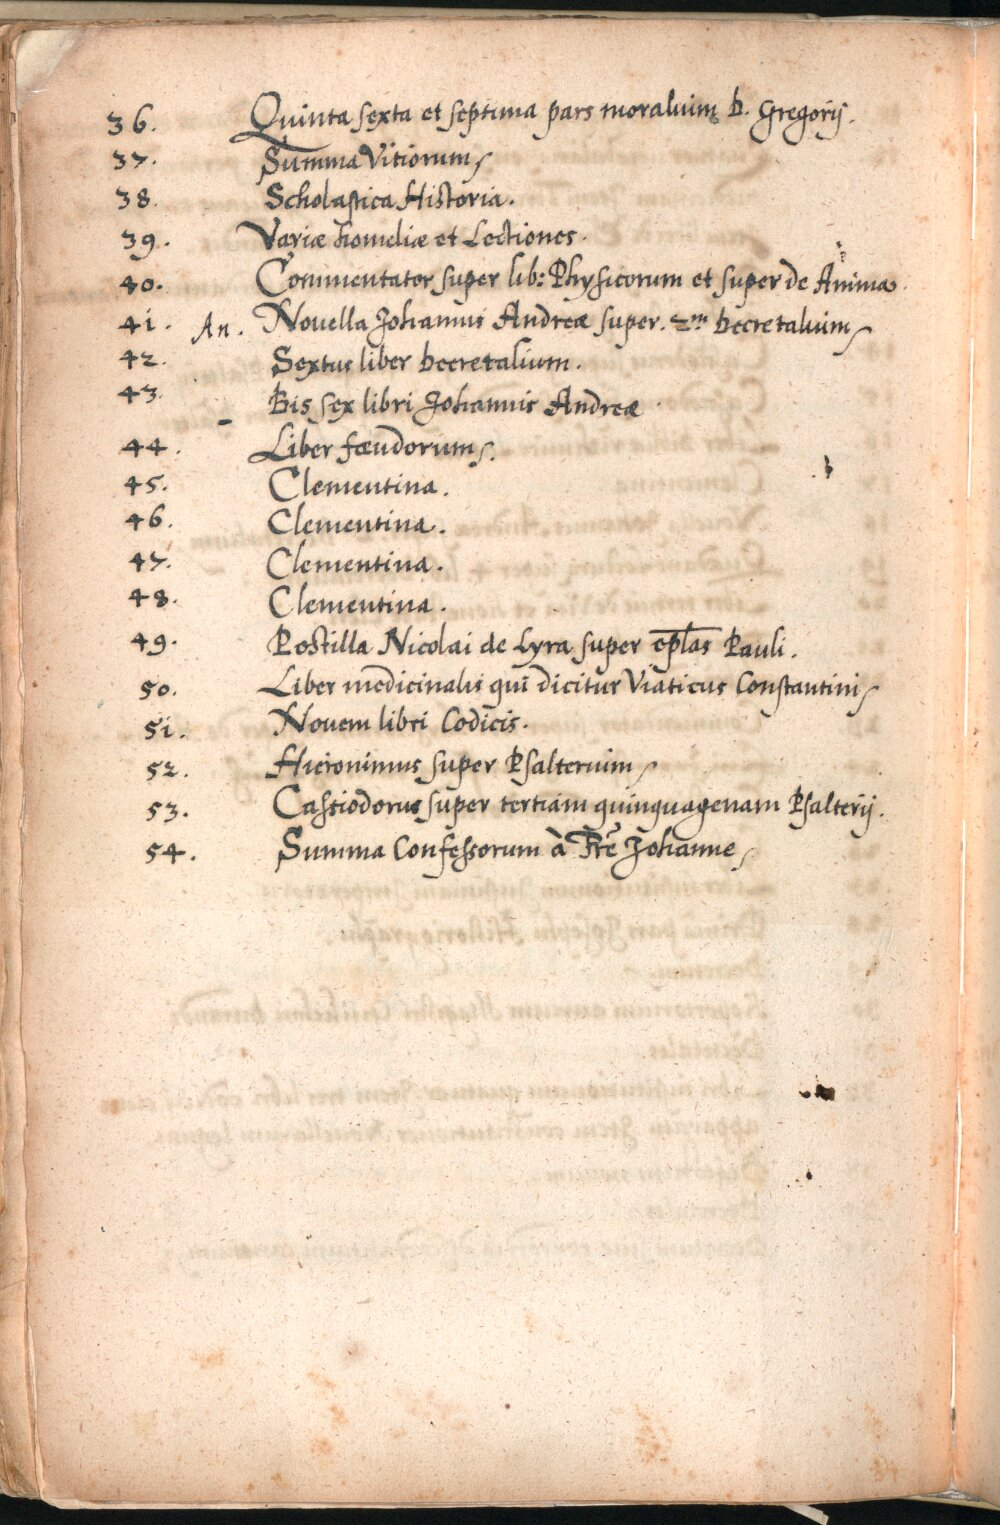 36. Quinta sexta et septima pars moralium b. Gregorij.
37. Summa Vitiorum
38. Scholastica Historia.
39. Variæ homeliæ et Lectiones.
40. Commentator super lib: Physicorum et super de Anima
41. An. Nouella Johannis Andreæ super. 2m decretalium
42. Sextus liber decretalium.
43. Bis sex libri Johannis Andreæ
44. Liber fœudorum.
45. Clementina.
46. Clementina.
47. Clementina.
48. Clementina.
49. Postilla Nicolai de Lyra super eplas Pauli.
50. Liber medicinalis qui dicitur Viaticus Constantini
51. Nouem libri Codicis.
52. Hieronimus super Psalterium
53. Cassiodorus super tertiam quinquagenam Psalterij.
54. Summa Confessorum à Fre Johanne